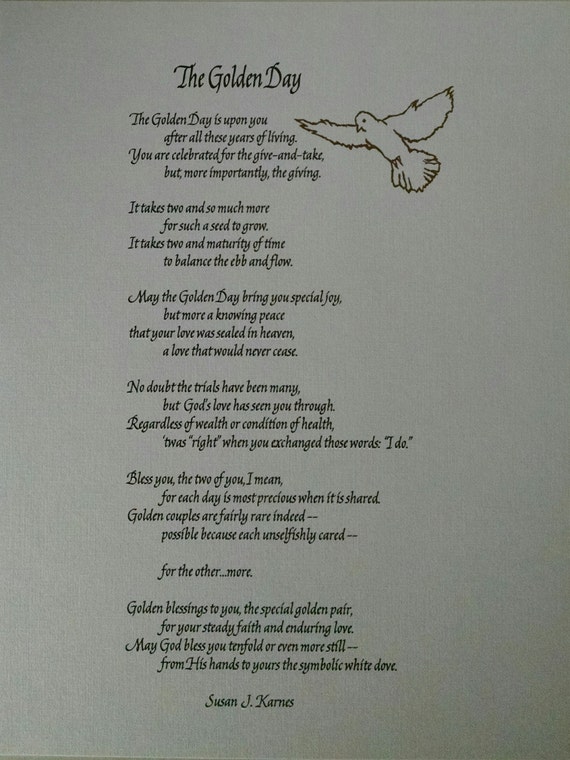 The Golden Day
The Golden Day is upon you
after all these years of living.
You are celebrated for the give-and-take,
but, more importantly, the giving.
It takes two and so much more
for such a seed to grow.
It takes two and maturity of time
to balance the ebb and flow.
May the Golden Day bring you special joy,
but more a knowing peace
that your love was sealed in heaven,
a love that would never cease.
No doubt the trials have been many,
but God's love has seen you through.
Regardless of wealth or condition of health,
'twas "right" when you exchanged those words: "I do."
Bless you, the two of you, I mean,
for each day is most precious when it is shared.
Golden couples are fairly rare indeed --
possible because each unselfishly cared --
for the other...more.
Golden blessings to you, the special golden pair,
for your steady faith and enduring love.
May God bless you tenfold or even more still --
from His hands to yours the symbolic white dove.
Susan J. Karnes